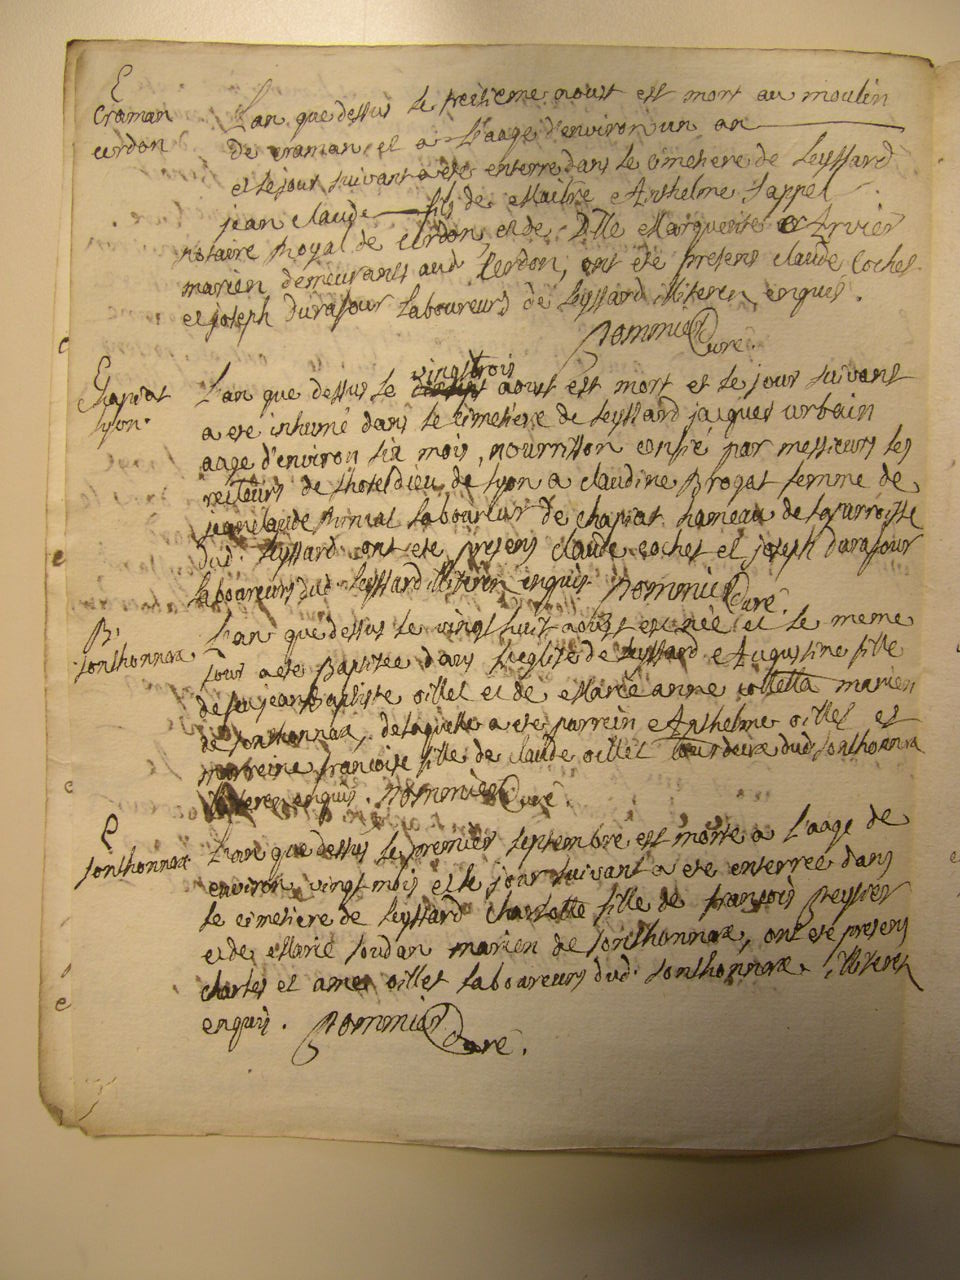 E
Craman
cerdon
L'an que dessus le treisieme aoust est mort au moulin
de craman, et a l'aage d'environ un an
et le jour suivant a ete enterre dans le cimetiere de Leyssard
jean claude fils de Maitre Anthelme Sappel
notaire Royal de cerdon, et de Dlle Marguerite Arvier
mariés demeurants aud Cerdon, ont ete presens claude Cochet
et joseph durafour Laboureurs de Leyssard illiteres enquis.
Pommier Curé.
E
Chapiat
Lyon.
L'an que dessus le vingt trois aoust est mort et le jour suivant
a ete inhumé dans le cimetiere de Leyssard jacques urbain
aagé d'environ six mois, nourrisson confié par messieurs les
recteurs de l'hotel dieu de Lyon a claudine Brogat femme de
jean claude Laboureur de chapiat hameau de la parroisse
dud. Leyssard ont ete presens claude cochet et joseph durafour
laboureurs dud. Leyssard illiteres enquis Pommier Curé.
B
Sonthonnax
L'an que dessus le vingt huit aoust est née et le meme
jour a ete Baptisée dans l'eglise de Leyssard Augustine fille
de feu jean Baptiste oillet et de Marie anne colletta mariés
de Sonthonnax, de laquelle a ete parrein Anthelme oillet et
marreine francoise fille de claude oillet dud. Sonthonnax
illiteres enquis. Pommier Curé.
E
Sonthonnax
L'an que dessus le premier Septembre est morte a l'aage de
environ vingt mois et le jour suivant a ete enterrée dans
le cimetiere de Leyssard charlotte fille de françois Peyssier
et de Marie Soudan mariés de Sonthonnax, ont ete presens
charles et ame oillet Laboureurs dud. Sonthonnax illiteres
enquis. Pommier Curé.